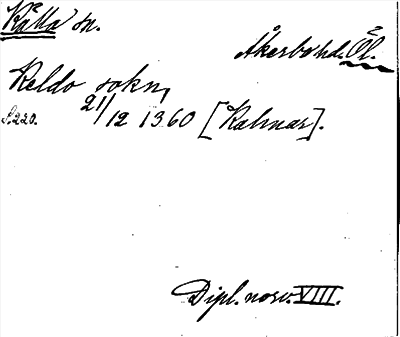 Källa sn.
Åkerbo hd. Öl.
Keldo sokn,
S. 220. 21/12 1360 [Kalmar].
Dipl. norv. VIII.